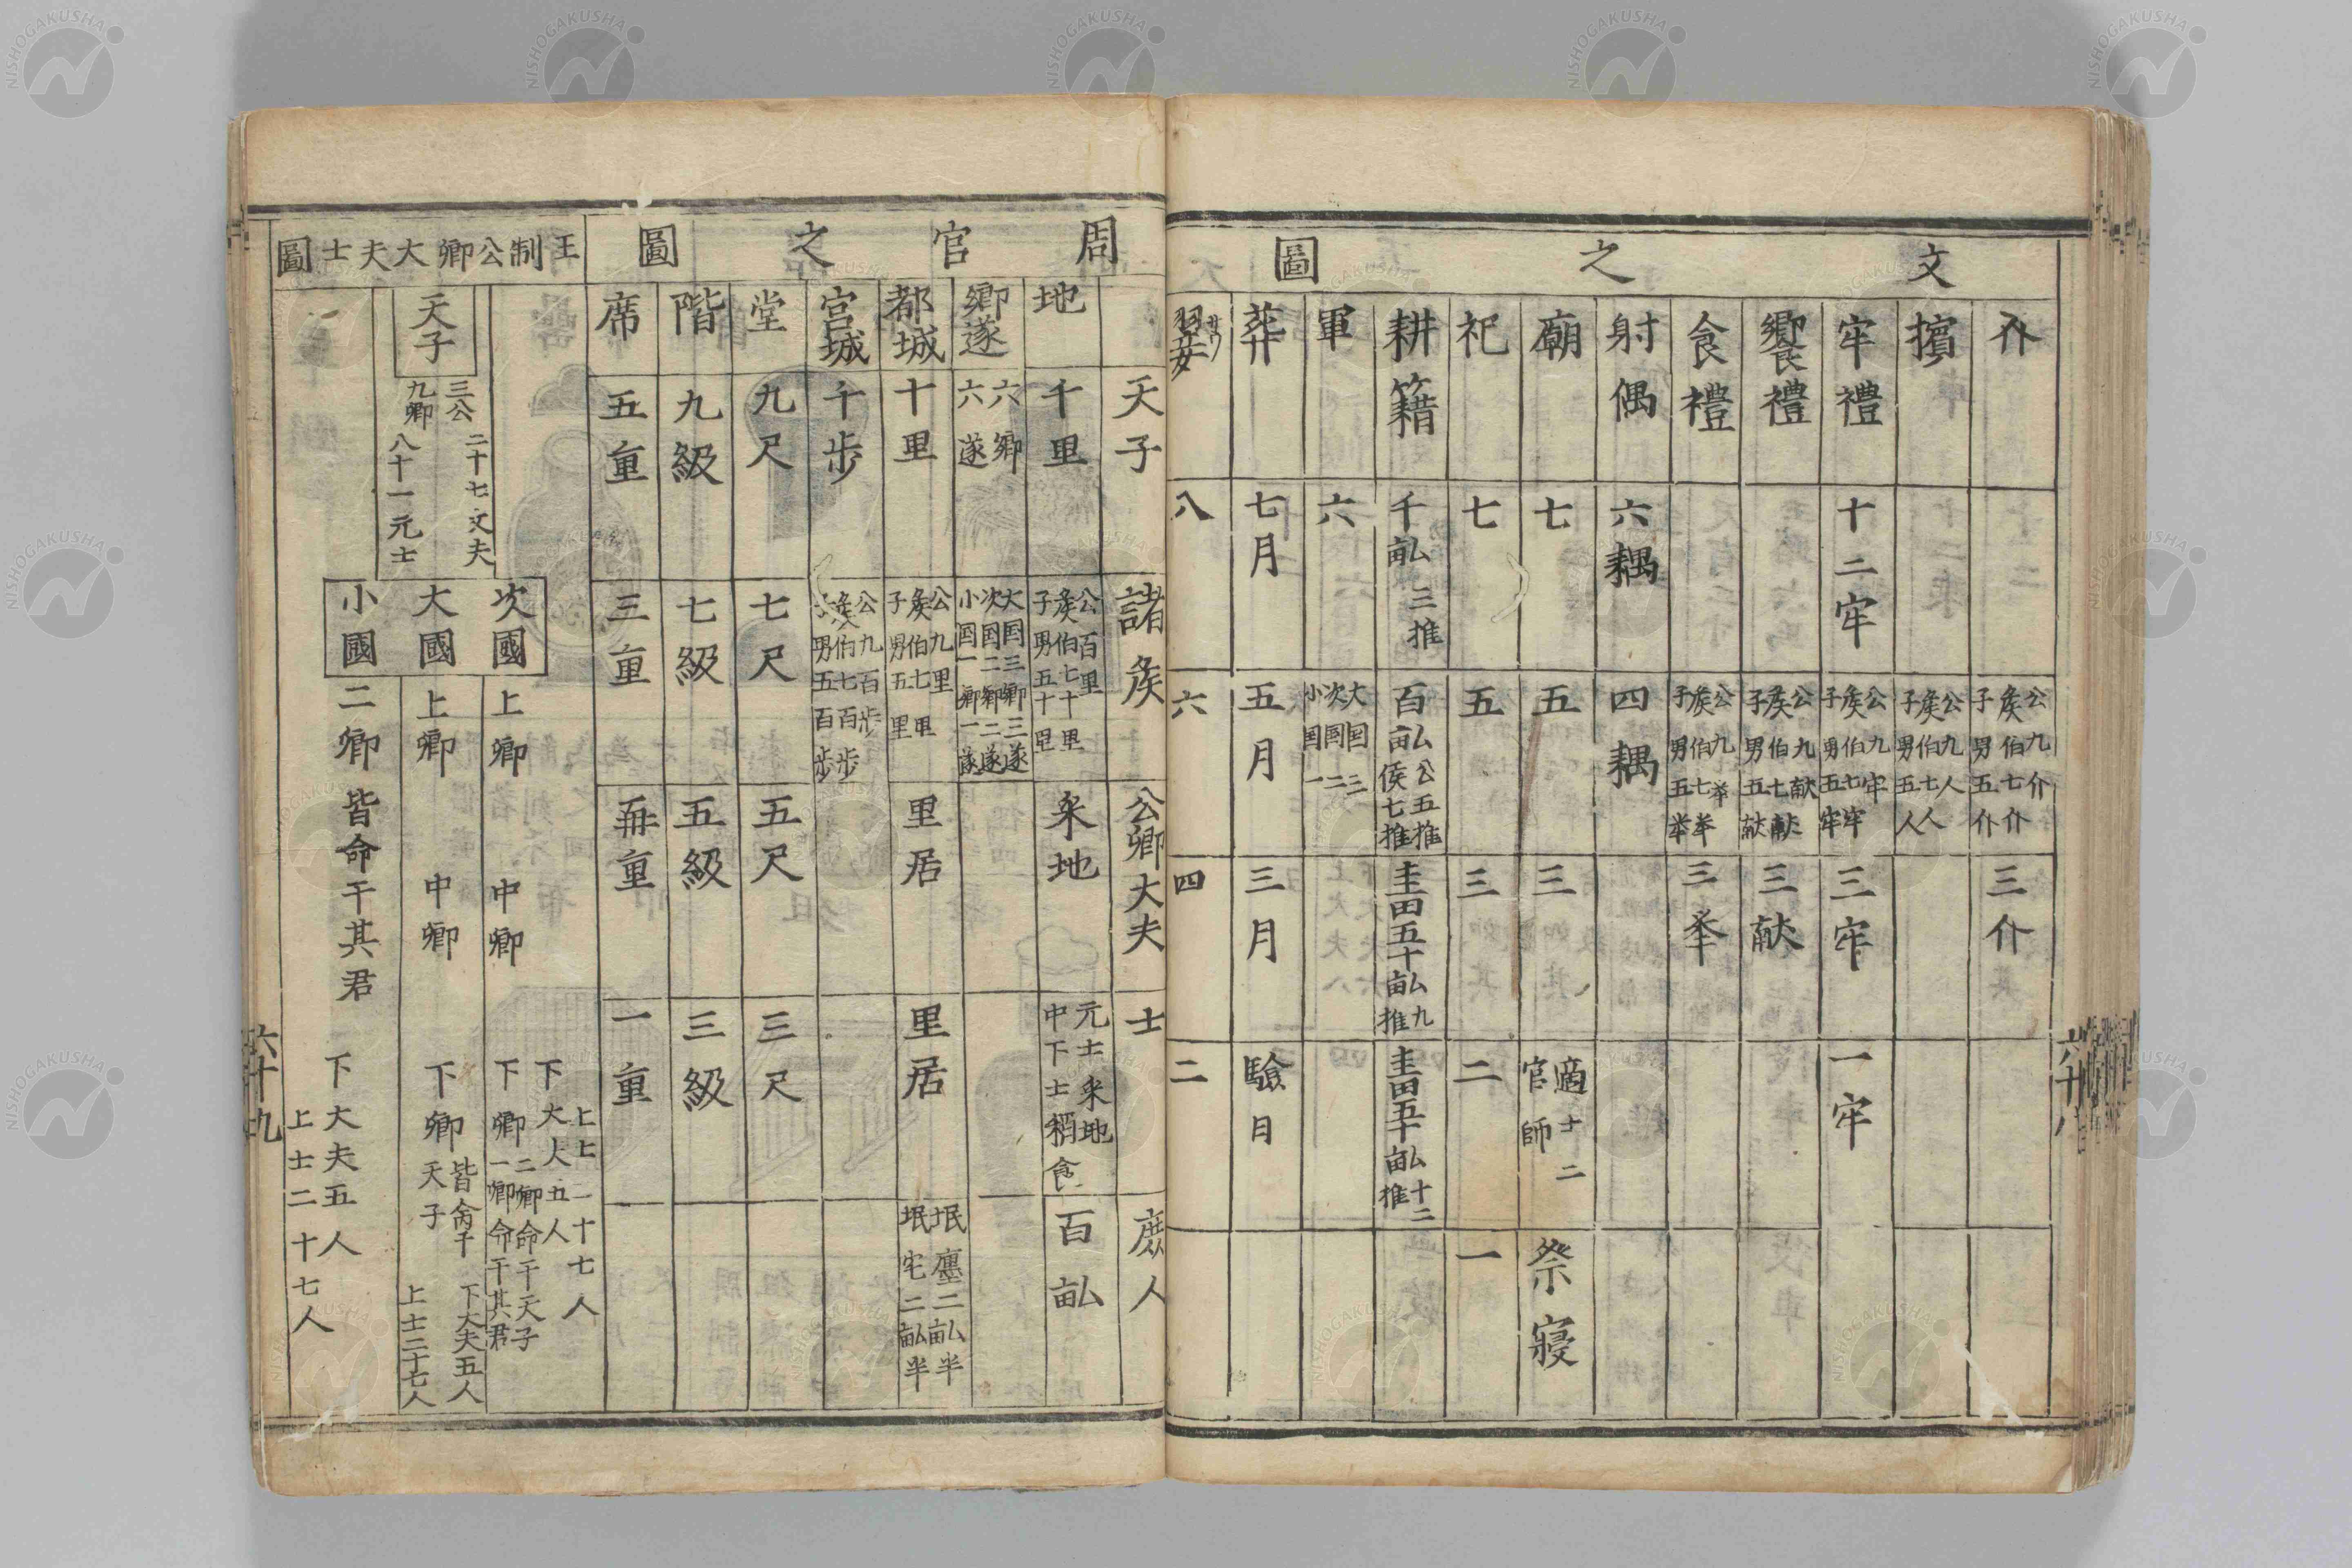 文之圖
介
公九介
侯伯七介
子男五介
三介
擯
公九人
侯伯七人
子男五人
牢禮
十二牢
公九牢
侯伯七牢
子男五牢
三牢
一牢
饗禮
公九献
侯伯七献
子男五献
三献
食禮
公九举
侯伯七举
子男五举
三举
射偶
六耦
四耦
廟
七
五
三
適士二
官師
祭寝
祀
七
五
三
二
一
耕籍
千畝三推
百畝公五推
侯七推
圭田五十畝九推
圭田五十畝十二推
軍
六
大国三
次国二
小国一
葬
七月
五月
三月
驗日
翣
八
六
四
二
六十八
周官之圖
天子
諸侯
公卿大夫
士
庶人
地
千里
公百里
侯伯七十里
子男五十里
采地
元士采地
中下士稍食
百畝
卿遂
六卿
六遂
大国三卿三遂
次国二卿二遂
小国一卿一遂
都城
十里
公九里
侯伯七里
子男五里
里居
里居
氓廛二畝半
氓宅二畝半
宫城
千步
公九百步
侯伯七百步
子男五百步
堂
九尺
七尺
五尺
三尺
階
九級
七級
五級
三級
席
五重
三重
再重
一重
王制公卿大夫士圖
天子
三公
九卿
二十七大夫
八十一元士
次國
大國
小國
上卿
中卿
下卿
二卿命于天子
一卿命于其君
下大夫五人
上士二十七人
上卿
中卿
下卿
皆命于天子
下大夫五人
上士二十七人
二卿皆命于其君
下大夫五人
上士二十七人
六十九
NISHOGAKUSHA